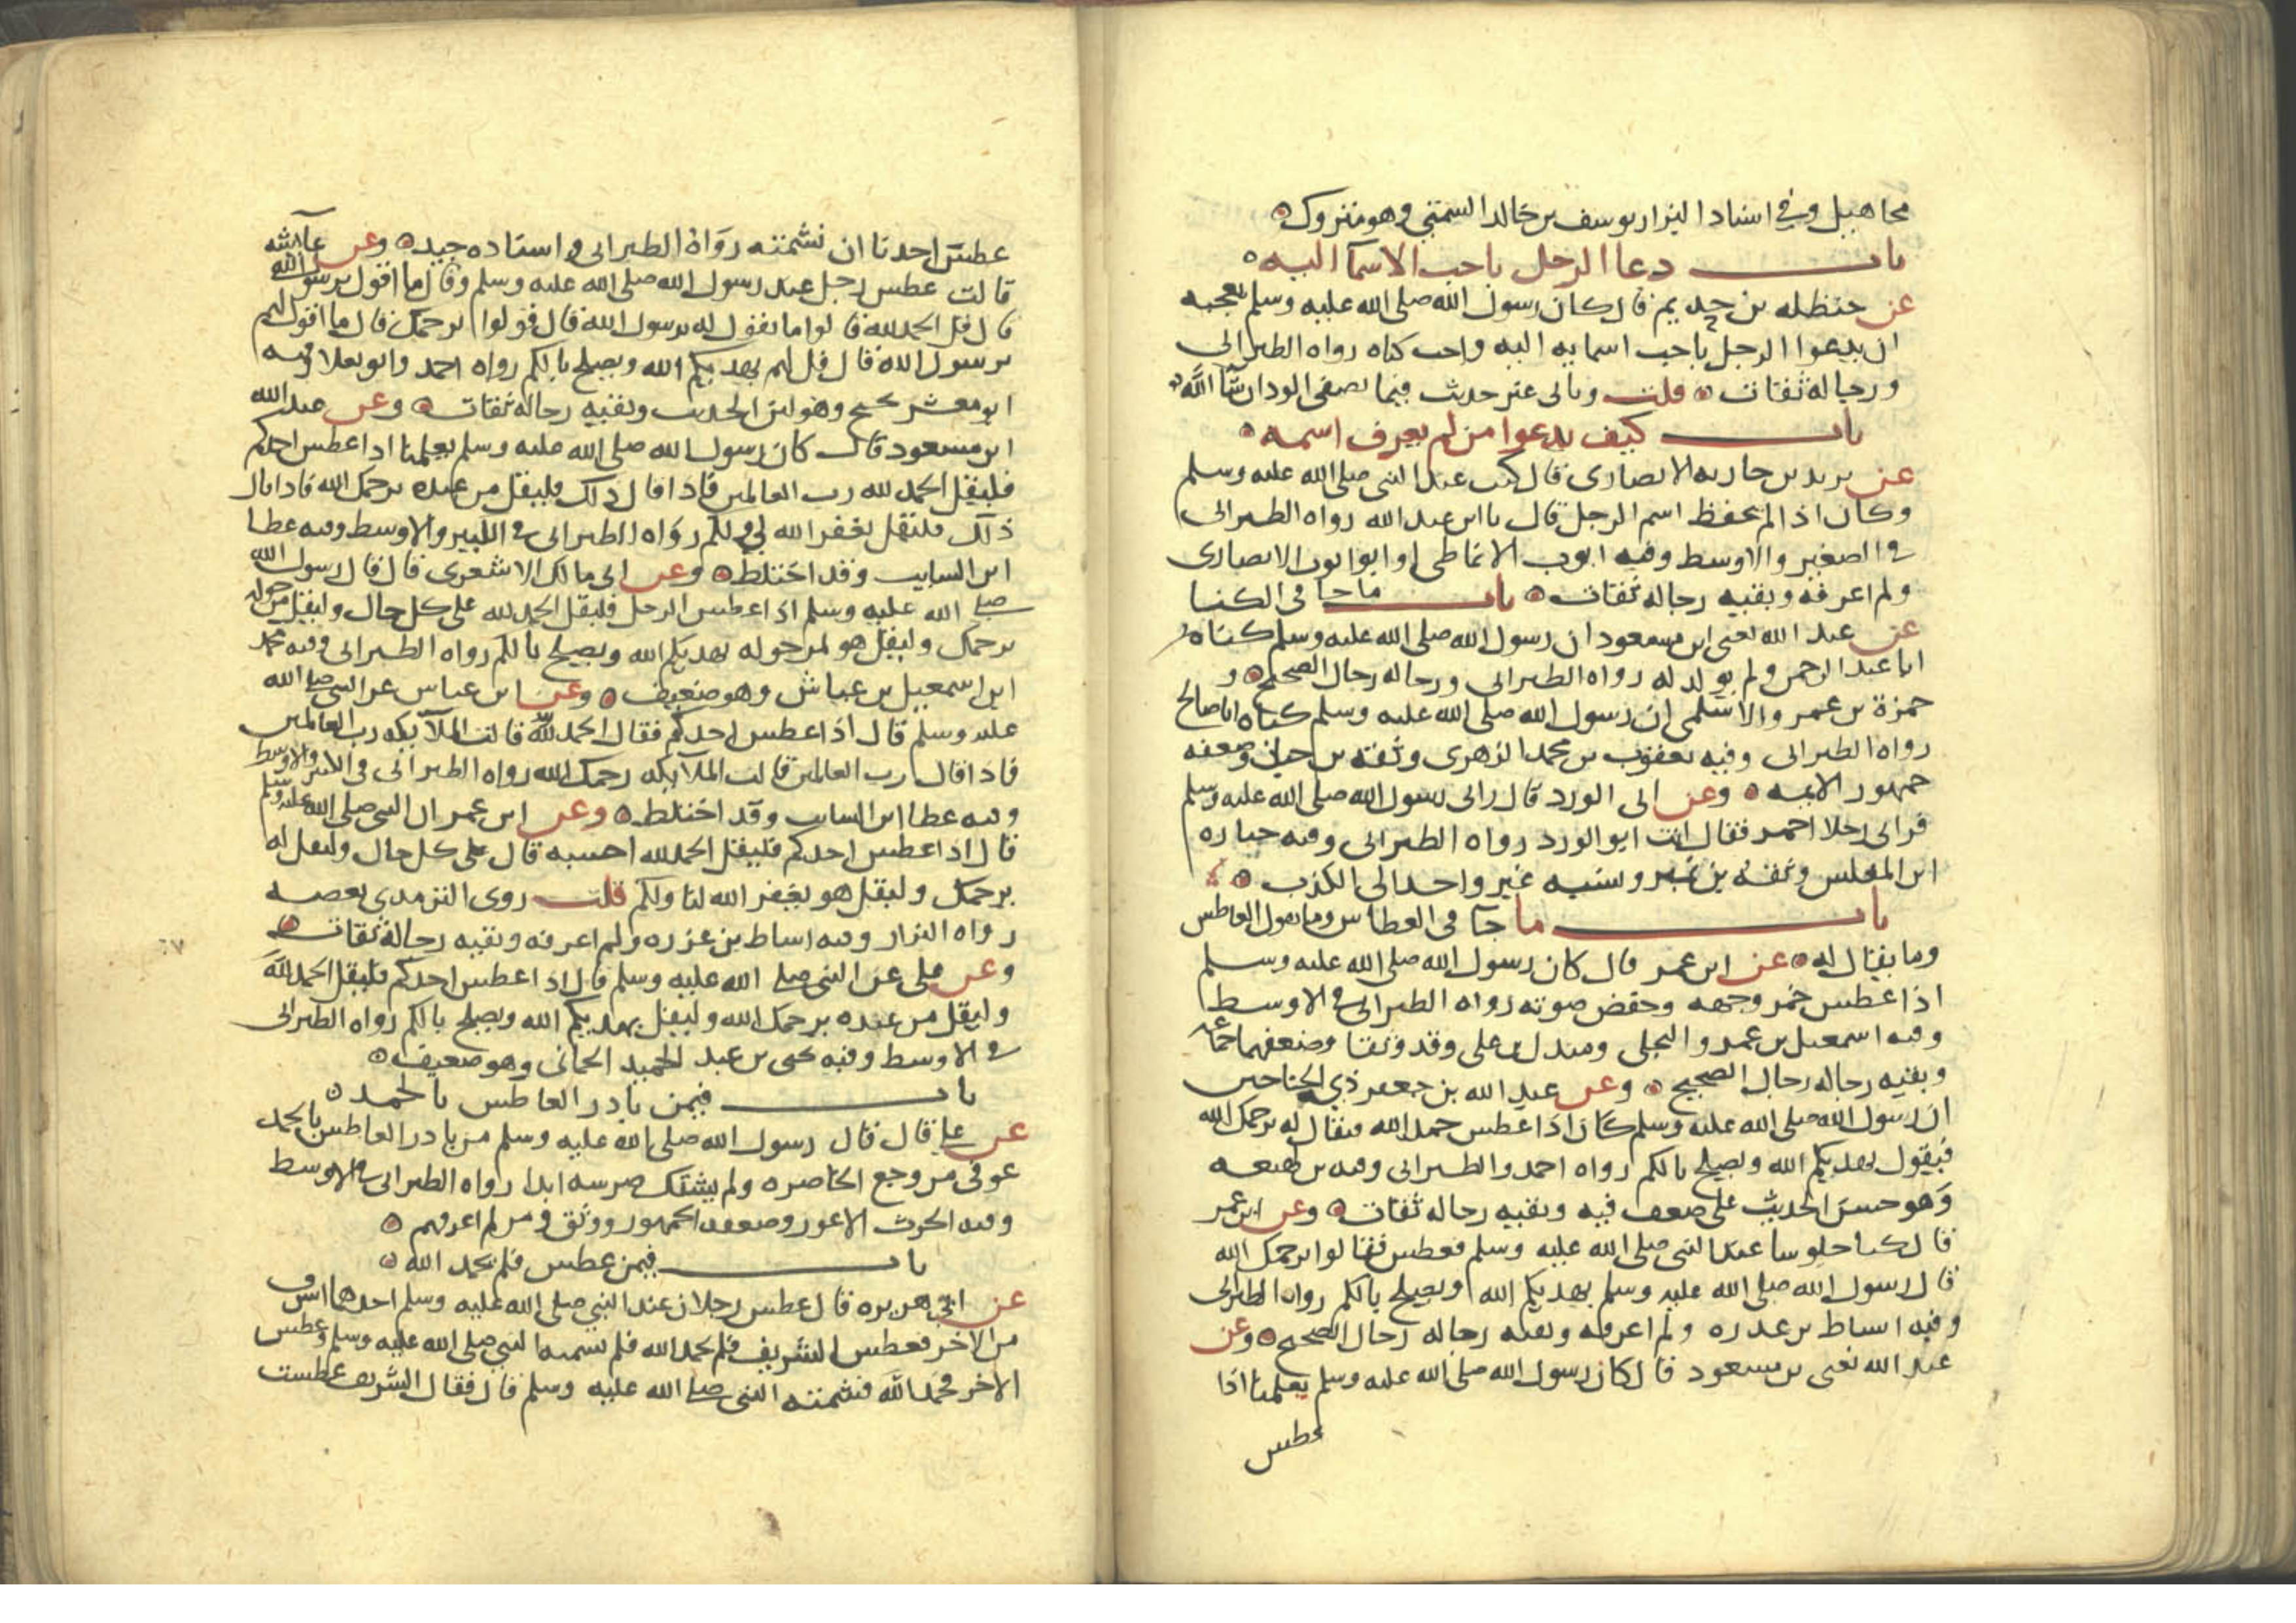 مجاهيل وفي اسناد البزار يوسف بن خالد السمتي وهو متروك
باب دعا الرجل باحب الاسما اليه
عن حنظله بن حديم قال كان رسول الله صلى الله عليه وسلم يعجبه
ان يدعوا الرجل باحب اسمايه اليه واحب كناه رواه الطبراني
ورجاله ثقات قلت وياتي غير حديث فيما يصفي الود ان شا الله
باب كيف يدعوا من لم يعرف اسمه
عن يزيد بن جاريه الانصاري قال كنت عند النبي صلى الله عليه وسلم
وكان اذا لم يحفظ اسم الرجل قال يا ابن عبد الله رواه الطبراني
في الصغير والاوسط وفيه ايوب الانماطي او ابو ايوب الانصاري
ولم اعرفه وبقيه رجاله ثقات باب ما جا في الكنا
عن عبد الله يعني ابن مسعود ان رسول الله صلى الله عليه وسلم كناه
ابا عبد الرحمن ولم يولد له رواه الطبراني ورجاله رجال الصحيح و
حمزة بن عمرو الاسلمي ان رسول الله صلى الله عليه وسلم كناه ابا صالح
رواه الطبراني وفيه يعقوب بن محمد الزهري وثقه بن حبان وضعفه
جمهور الايمه وعن ابي الورد قال راني رسول الله صلى الله عليه وسلم
فراني رجلا احمر فقال انت ابو الورد رواه الطبراني وفيه جباره
ابن المغلس وثقه بن نمير ونسبه غير واحد الى الكذب
باب ما جآ في العطاس وما يقول العاطس
وما يقال له عن ابن عمر قال كان رسول الله صلى الله عليه وسلم
اذا عطس خمر وجهه وخفض صوته رواه الطبراني في الاوسط
وفيه اسمعيل بن عمرو البجلي ومندل بن علي وقد وثقا وضعفهما جماعه
وبقيه رجاله رجال الصحيح وعن عبد الله بن جعفر ذي الجناحين
ان رسول الله صلى الله عليه وسلم كان اذا عطس حمد الله فيقال له يرحمك الله
فيقول يهديكم الله ويصلح بالكم رواه احمد والطبراني وفيه بن لهيعه
وهو حسن الحديث على ضعف فيه وبقيه رجاله ثقات وعن ابن عمر
قال كنا جلوسا عند النبي صلى الله عليه وسلم فعطس فقالوا يرحمك الله
قال رسول الله صلى الله عليه وسلم يهديكم الله ويصلح بالكم رواه الطبراني
وفيه اسباط بن عزره ولم اعرفه وبقيه رجاله رجال الصحيح وعن
عبد الله يعني بن مسعود قال كان رسول الله صلى الله عليه وسلم يعلمنا اذا
عطس
عطس احدنا ان نشمته رواه الطبراني واسناده جيد وعن عايشه
قالت عطس رجل عند رسول الله صلى الله عليه وسلم وقال ما اقول يرسول الله
قال قل الحمد لله قالوا ما نقول له يرسول الله قال قولوا يرحمك قال ما اقول لهم
يرسول الله قال قل لهم يهديكم الله ويصلح بالكم رواه احمد وابو يعلا وفيه
ابو معشر نجيح وهو لين الحديث وبقيه رجاله ثقات وعن عبد الله
ابن مسعود قال كان رسول الله صلى الله عليه وسلم يعلمنا اذا عطس احدكم
فليقل الحمد لله رب العالمين فاذا قال ذلك فليقل من عنده يرحمك الله فاذا قال
ذلك فليقل يغفر الله لي ولكم رواه الطبراني في الكبير والاوسط وفيه عطا
ابن السايب وقد اختلط وعن ابي مالك الاشعري قال قال رسول الله
صلى الله عليه وسلم اذا عطس الرجل فليقل الحمد لله على كل حال وليقل من حوله
يرحمك وليقل هو لمن حوله يهديكم الله ويصلح بالكم رواه الطبراني وفيه محمد
ابن اسمعيل بن عياش وهو ضعيف وعن ابن عباس عن النبي صلى الله
عليه وسلم قال اذا عطس احدكم فقال الحمد لله قالت الملآيكه رب العالمين
فاذا قال رب العالمين قالت الملآيكه رحمك الله رواه الطبراني في الكبير والاوسط
وفيه عطا ابن السايب وقد اختلط وعن ابن عمر ان النبي صلى الله عليه وسلم
قال اذا عطس احدكم فليقل الحمد لله احسبه قال على كل حال وليقل له
يرحمك وليقل هو يغفر الله لنا ولكم قلت روى الترمدي بعضه
رواه البزار وفيه اسباط بن عزره ولم اعرفه وبقيه رجاله ثقات
وعن علي عن النبي صلى الله عليه وسلم قال اذا عطس احدكم فليقل الحمد لله
وليقل من عنده يرحمك الله وليقل يهديكم الله ويصلح بالكم رواه الطبراني
في الاوسط وفيه يحيى بن عبد الحميد الحماني وهو ضعيف
باب فيمن بادر العاطس بالحمد
عن علي قال قال رسول الله صلى الله عليه وسلم من بادر العاطس بالحمد
عوفي من وجع الخاصره ولم يشتك ضرسه ابدا رواه الطبراني في الاوسط
وفيه الحرث الاعور وضعفه الجمهور ووثق ومن لم اعرفهم
باب فيمن عطس فلم يحمد الله
عن ابي هريره قال عطس رجلان عند النبي صلى الله عليه وسلم احدهما اشرف
من الاخر فعطس الشريف فلم يحمد الله فلم يشمته النبي صلى الله عليه وسلم وعطس
الاخر فحمد الله فشمته النبي صلى الله عليه وسلم قال فقال الشريف عطست